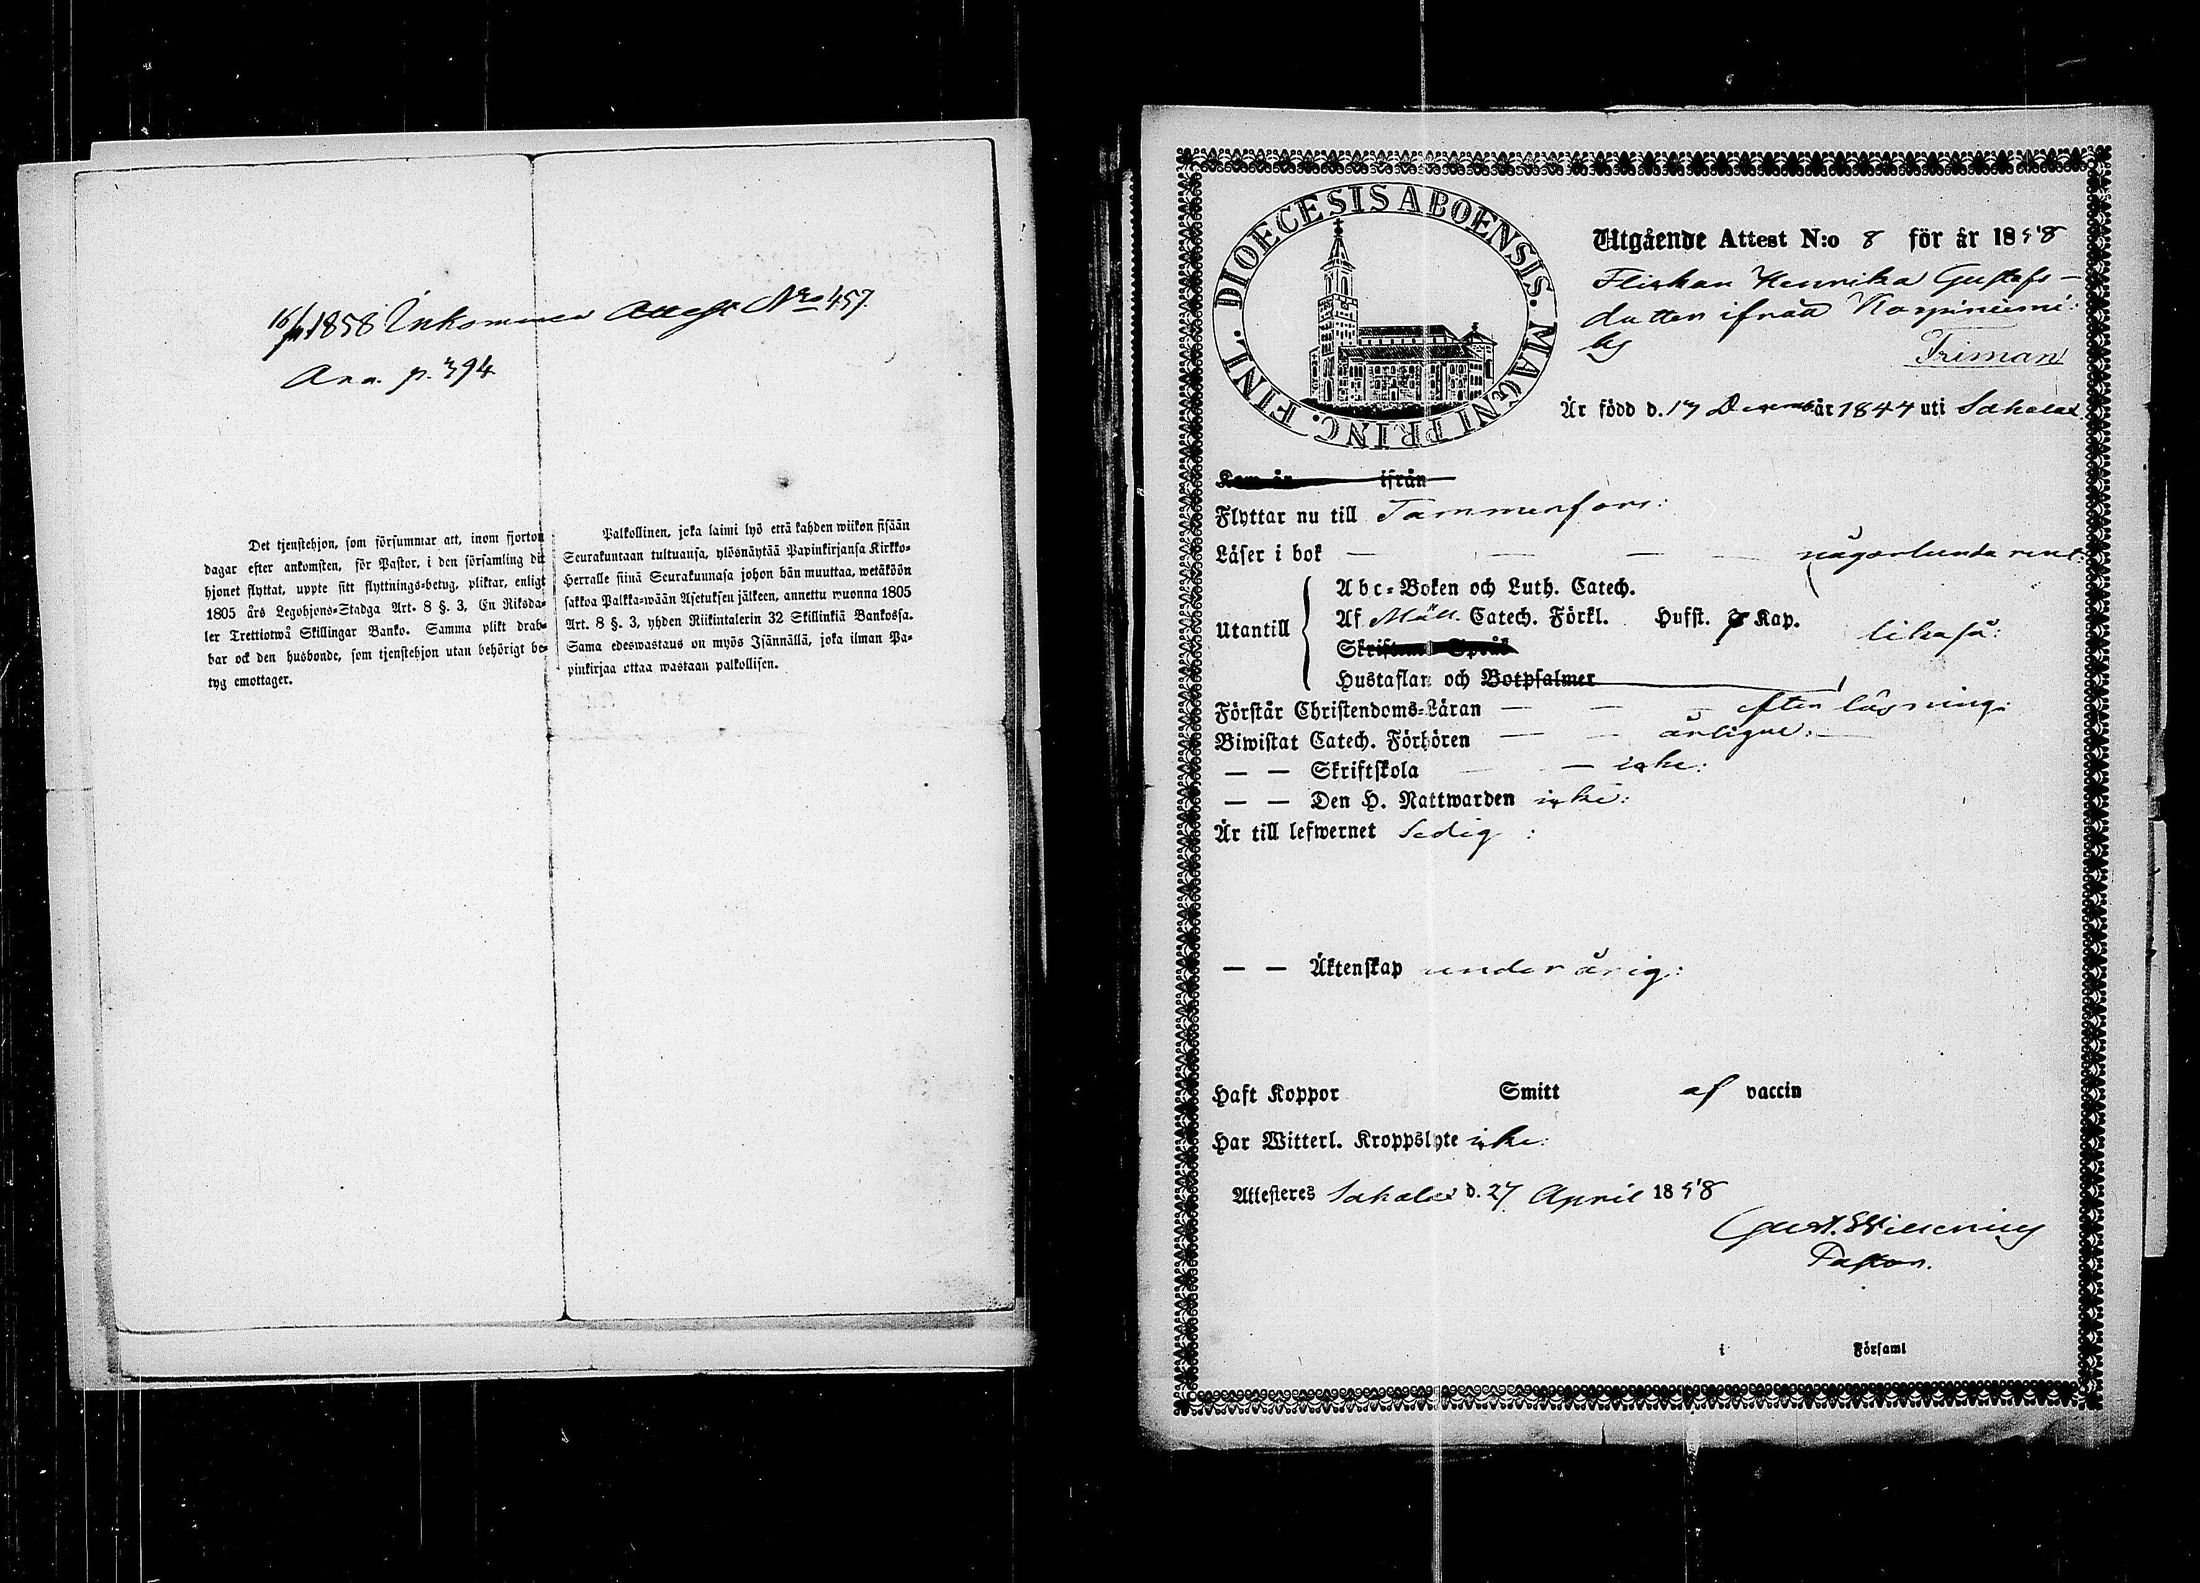 16/11 1858 Inkommen Attest Nro 457.
Ana. p. 394
Det tjenstehjon, som försummar att, inom fjorton
dagar efter ankomsten, för Pastor, i den församling dit
hjonet flyttat, uppte sitt flyttnings-betyg, pliktar, enligt
1805 års Legohjons-Stadga Art. 8 §. 3, En Riksda-
ler Trettiotwå Skillingar Banko. Samma plikt drab-
bar ock den husbonde, som tjenstehjon utan behörigt be-
tyg emottager.
Palkollinen, joka laimi lyö että kahden wiikon sisään
Seurakuntaan tultuansa, ylösnäytää Papinkirjansa Kirkko-
Herralle siinä Seurakunnasa johon hän muuttaa, wetäköön
sakkoa Palkka-wään Asetuksen jälkeen, annettu wuonna 1805
Art. 8 §. 3, yhden Riikintalerin 32 Skillinkiä Bankossa.
Sama edeswastaus on myös Isännällä, joka ilman Pa-
pinkirjaa ottaa wastaan palkollisen.
FINL. DIOECESIS ABOENSIS. MAGNI PRINC.
Utgående Attest N:o 8 för år 1858
Flickan Henrika Gustafs-
dotter ifrån Karpiniemi:
by Friman
Är född d. 17 Decemb. år 1844 uti Sahalax
Kom år ifrån
Flyttar nu till Tammerfors:
Läser i bok — — — — någorlunda rent:
Abc-Boken och Luth. Catech.
Utantill Af Möll. Catech. Förkl. Hufst. Kap. likaså:
Skriftens Språk
Hustaflan och Botpsalmer
Förstår Christendoms-Läran — — — efter läsning:
Biwistat Catech. Förhören — — årligen: —
— — Skriftskola — icke:
— — Den H. Nattwarden icke:
Är till lefwernet Sedig:
— — Äktenskap underårig:
Haft Koppor Smitt af vaccin
Har Witterl. Kroppslyte icke:
Attesteres Sahalax d. 27 April 1858
Gust. Willenius
Pastor.
i Församl